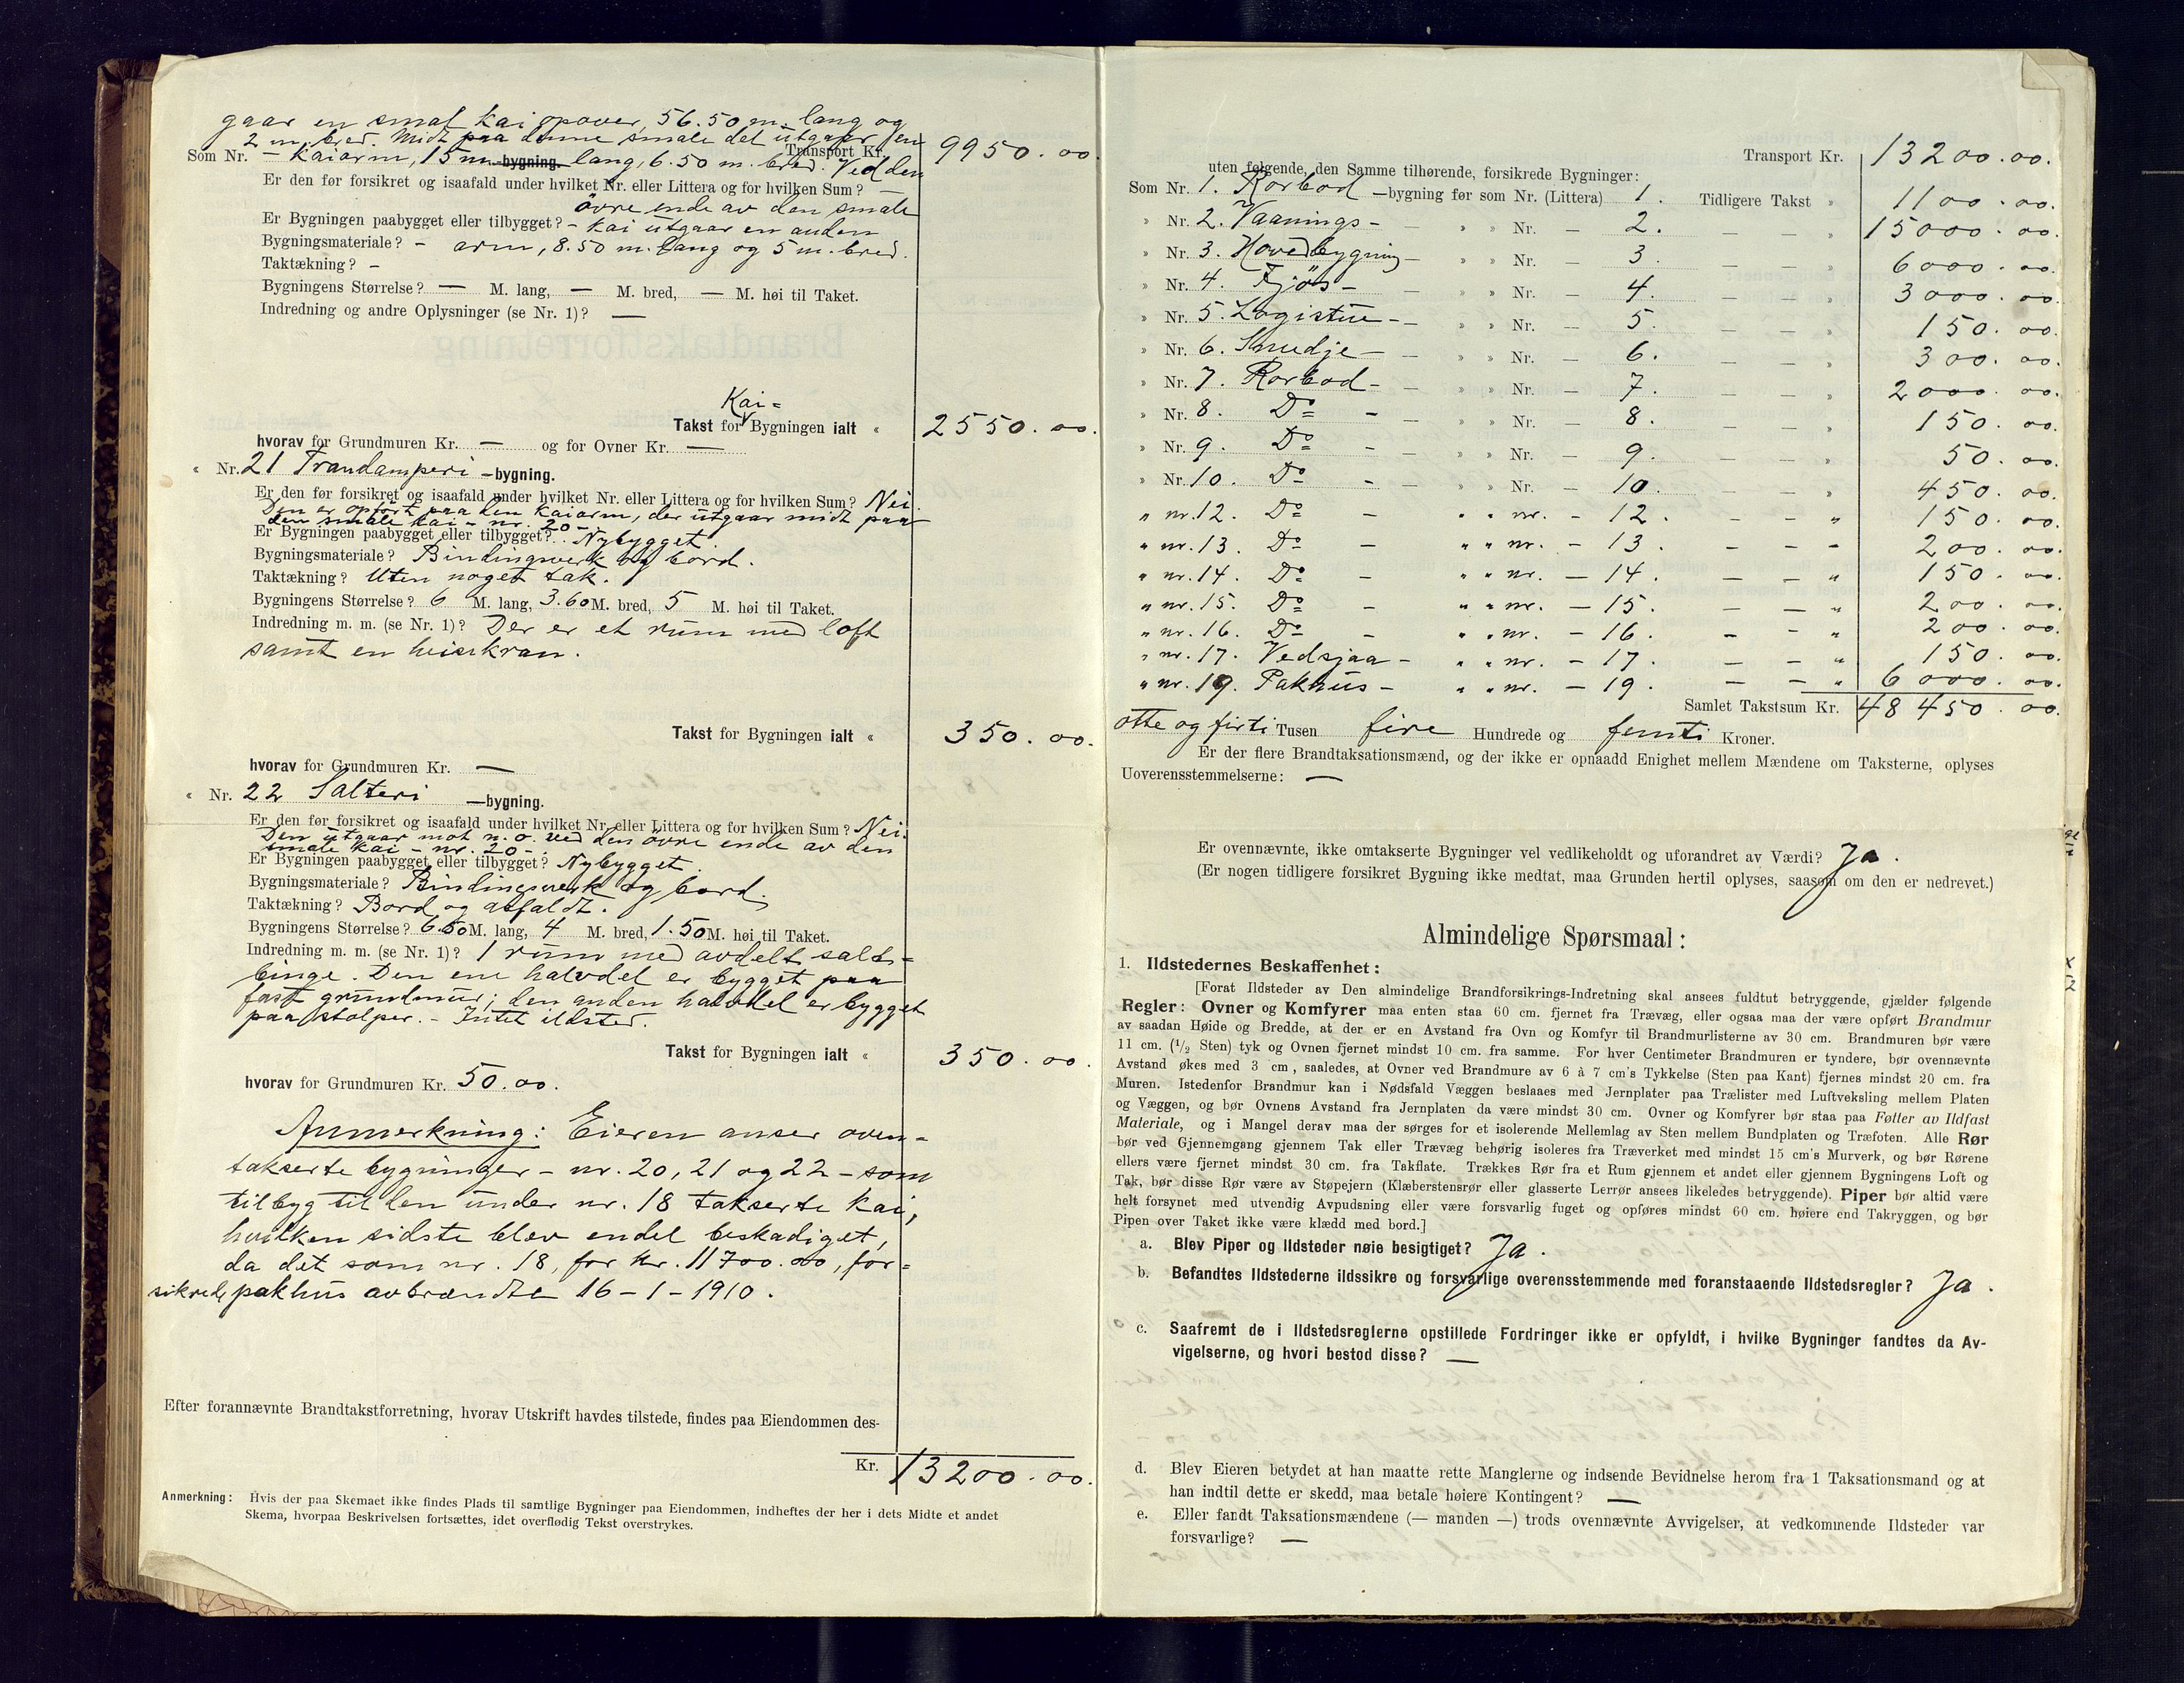 gaar en smal kai opover, 56.50 m. lang og
2 m. bred. Midt paa denne smale del utgaar en
Transport Kr. 9950.00.
Som Nr. – kaiarm, 15 m. -bygning. lang, 6.50 m. bred. Ved den
Er den før forsikret og isaafald under hvilket Nr. eller Littera og for hvilken Sum? —
övre ende av den smale
Er Bygningen paabygget eller tilbygget? – kai utgaar en anden
Bygningsmateriale? – arm, 8.50 m. lang og 5 m. bred.
Taktækning? –
Bygningens Størrelse? — M. lang, — M. bred, — M. høi til Taket.
Indredning og andre Oplysninger (se Nr. 1)? —
Kai=
Takst for Bygningen ialt « 2550.00.
hvorav for Grundmuren Kr. — og for Ovner Kr. —
« Nr. 21 Trandamperi —bygning.
Er den før forsikret og isaafald under hvilket Nr. eller Littera og for hvilken Sum? Nei.
Den er opført paa den kaiarm, der utgaar midt paa
den smale kai – nr. 20 –.
Er Bygningen paabygget eller tilbygget? Nybygget.
Bygningsmateriale? Bindingsverk og bord.
Taktækning? Uten noget tak.
Bygningens Størrelse? 6 M. lang, 3.60 M. bred, 5 M. høi til Taket.
Indredning m. m. (se Nr. 1)? Der er et rum med loft
samt en heisekran.
Takst for Bygningen ialt « 350.00.
hvorav for Grundmuren Kr. —
« Nr. 22 Salteri —bygning.
Er den før forsikret og isaafald under hvilket Nr. eller Littera og for hvilken Sum? Nei.
Den utgaar mot n.o. ved den övre ende av den
smale kai – nr. 20 –.
Er Bygningen paabygget eller tilbygget? Nybygget.
Bygningsmateriale? Bindingsverk og bord.
Taktækning? Bord og asfaldt.
Bygningens Størrelse? 6.50 M. lang, 4 M. bred, 1.50 M. høi til Taket.
Indredning m. m. (se Nr. 1)? 1 rum med avdelt salt=
binge. Den ene halvdel er bygget paa
fast grundmur; den anden halvdel er bygget
paa stolper. – Intet ildsted.
Takst for Bygningen ialt « 350.00.
hvorav for Grundmuren Kr. 50.00.
Anmerkning: Eieren anser oven=
takserte bygninger – nr. 20, 21 og 22 – som
tilbyg til den under nr. 18 takserte kai,
hvilken sidste blev endel beskadiget,
da det som nr. 18, for kr. 11700.00, for=
sikrede pakhus avbrændte 16 – 1 – 1910.
Efter forannævnte Brandtakstforretning, hvorav Utskrift havdes tilstede, findes paa Eiendommen des-
Kr. 13200.00.
Anmerkning: Hvis der paa Skemaet ikke findes Plads til samtlige Bygninger paa Eiendommen, indheftes der her i dets Midte et andet
Skema, hvorpaa Beskrivelsen fortsættes, idet overflødig Tekst overstrykes.
Transport Kr. 13200.00.
uten følgende, den Samme tilhørende, forsikrede Bygninger:
Som Nr. 1. Rorbod —bygning før som Nr. (Littera) 1. Tidligere Takst » 1100.00.
» Nr. 2. Vaanings- — » » Nr. — 2. — — » 15000.00.
» Nr. 3. Hovedbygning — » » Nr. — 3. — — » 6000.00.
» Nr. 4. Fjös- — » » Nr. — 4. — — » 3000.00.
» Nr. 5. Logistue- — » » Nr. — 5. — — » 150.00.
» Nr. 6. Smedje- — » » Nr. — 6. — — » 300.00.
» Nr. 7. Rorbod- — » » Nr. — 7. — — » 2000.00.
» Nr. 8. Do - — » » Nr. — 8. — — » 150.00.
» Nr. 9. Do - — » » Nr. — 9. — — » 50.00.
» Nr. 10. Do - — » » Nr. — 10. — — » 450.00.
" nr. 12. Do - " " nr. – 12. – – " 150.00.
" nr. 13. Do – " " nr. – 13. – – " 200.00.
" nr. 14. Do – " " nr. – 14. – – " 150.00.
" nr. 15. Do – " " nr. – 15. – – " 200.00.
" nr. 16. Do – " " nr. – 16. – – " 200.00.
" nr. 17. Vedsjaa – " " nr. – 17. – – " 150.00.
" nr. 19. Pakhus – " " nr. – 19. – – " 6000.00.
Samlet Takstsum Kr. 48450.00.
otte og firti Tusen fire Hundrede og femti Kroner.
Er der flere Brandtaksationsmænd, og der ikke er opnaadd Enighet mellem Mændene om Taksterne, oplyses
Uoverensstemmelserne: —
Er ovennævnte, ikke omtakserte Bygninger vel vedlikeholdt og uforandret av Værdi? Ja.
(Er nogen tidligere forsikret Bygning ikke medtat, maa Grunden hertil oplyses, saasom om den er nedrevet.)
Almindelige Spørsmaal:
1. Ildstedernes Beskaffenhet:
[Forat Ildsteder av Den almindelige Brandforsikrings-Indretning skal ansees fuldtut betryggende, gjælder følgende
Regler: Ovner og Komfyrer maa enten staa 60 cm. fjernet fra Trævæg, eller ogsaa maa der være opført Brandmur
av saadan Høide og Bredde, at der er en Avstand fra Ovn og Komfyr til Brandmurlisterne av 30 cm. Brandmuren bør være
11 cm. (1/2 Sten) tyk og Ovnen fjernet mindst 10 cm. fra samme. For hver Centimeter Brandmuren er tyndere, bør ovennævnte
Avstand økes med 3 cm, saaledes, at Ovner ved Brandmure av 6 à 7 cm's Tykkelse (Sten paa Kant) fjernes mindst 20 cm. fra
Muren. Istedenfor Brandmur kan i Nødsfald Væggen beslaaes med Jernplater paa Trælister med Luftveksling mellem Platen
og Væggen, og bør Ovnens Avstand fra Jernplaten da være mindst 30 cm. Ovner og Komfyrer bør staa paa Føtter av Ildfast
Materiale, og i Mangel derav maa der sørges for et isolerende Mellemlag av Sten mellem Bundplaten og Træfoten. Alle Rør
bør ved Gjennemgang gjennem Tak eller Trævæg behørig isoleres fra Træverket med mindst 15 cm's Murverk, og bør Rørene
ellers være fjernet mindst 30 cm. fra Takflate. Trækkes Rør fra et Rum gjennem et andet eller gjennem Bygningens Loft og
Tak, bør disse Rør være av Støpejern (Klæberstensrør eller glasserte Lerrør ansees likeledes betryggende). Piper bør altid være
helt forsynet med utvendig Avpudsning eller være forsvarlig fuget og opføres mindst 60 cm. høiere end Takryggen, og bør
Pipen over Taket ikke være klædd med bord.]
a. Blev Piper og Ildsteder nøie besigtiget? Ja.
b. Befandtes Ildstederne ildssikre og forsvarlige overensstemmende med foranstaaende Ildstedsregler? Ja.
c. Saafremt de i Ildstedsreglerne opstillede Fordringer ikke er opfyldt, i hvilke Bygninger fandtes da Av-
vigelserne, og hvori bestod disse? —
d. Blev Eieren betydet at han maatte rette Manglerne og indsende Bevidnelse herom fra 1 Taksationsmand og at
han indtil dette er skedd, maa betale høiere Kontingent? —
e. Eller fandt Taksationsmændene (— manden —) trods ovennævnte Avvigelser, at vedkommende Ildsteder var
forsvarlige? —